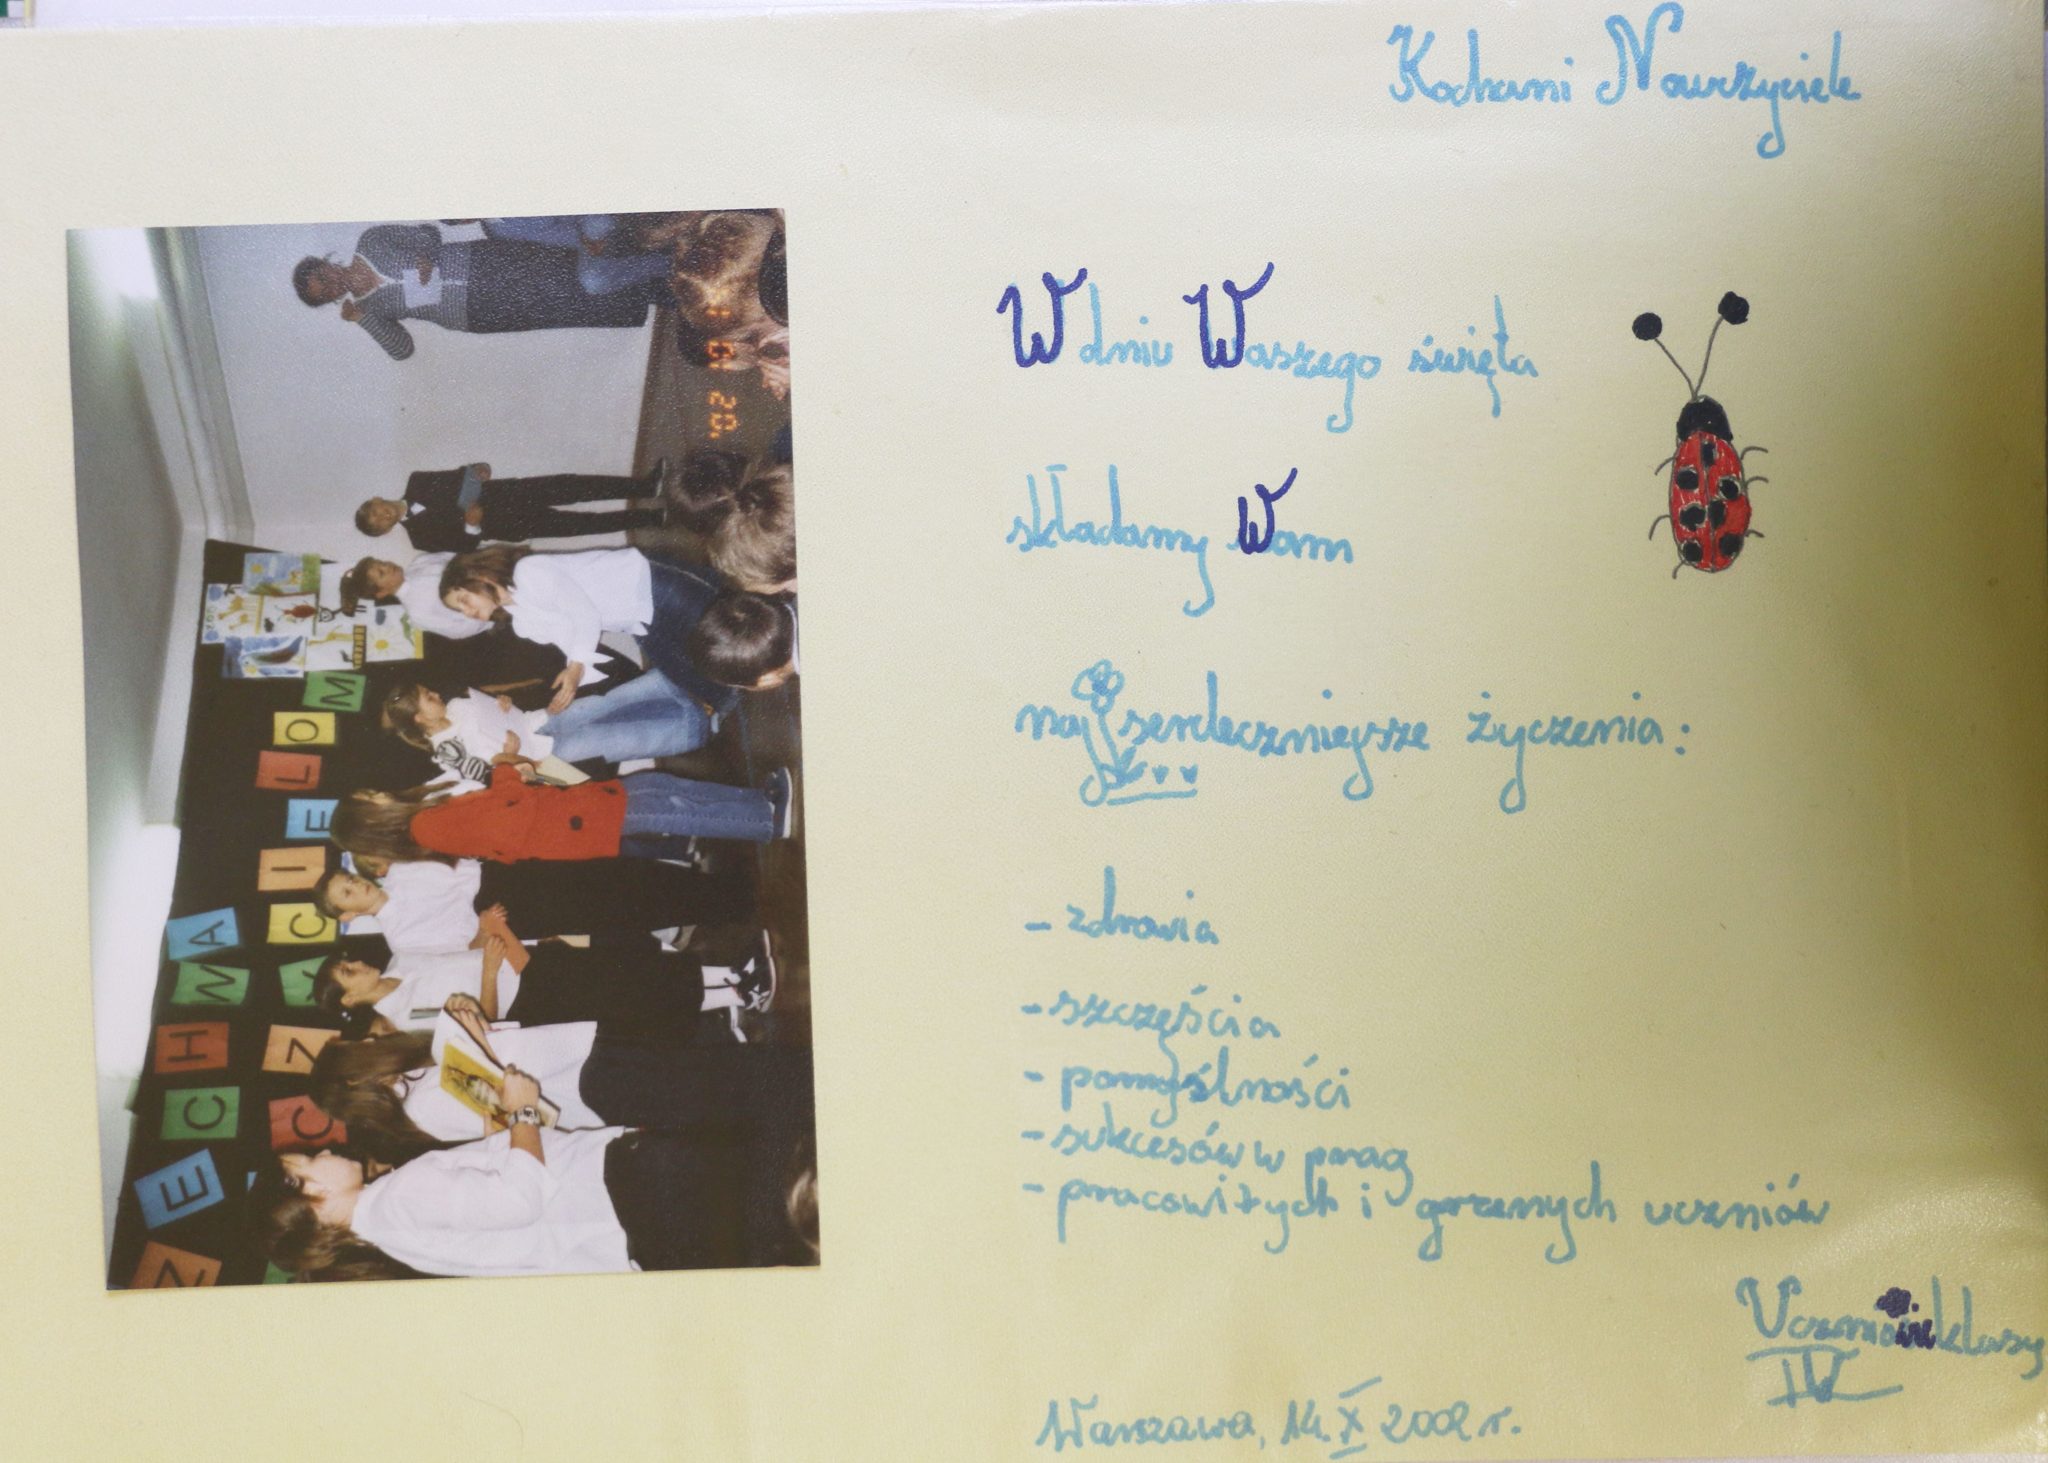 Kochani Nauczyciele
W dniu Waszego święta
składamy Wam
najserdeczniejsze życzenia:
- zdrowia
- szczęścia
- pomyślności
- sukcesów w pracy
- pracowitych i grzecznych uczniów
Uczniowie klasy
IV
Warszawa, 14.X 2002 r.
ZECHNA
CZYCIELOM
'02 10